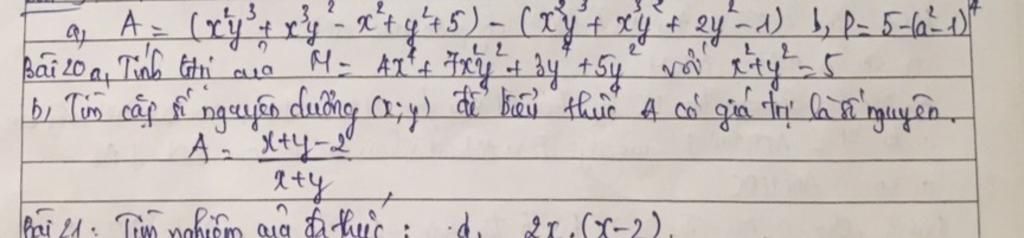 a, A = (x²y³ + x³y² - x² + y² + 5) - (x²y³ + x³y² + 2y² - 1) b, P = 5 - (a² - 1)⁴
Bài 20 a, Tính gtrị của M = 4x⁴ + 7x²y² + 3y⁴ + 5y² với x² + y² = 5
b, Tìm cặp số nguyên dương (x; y) để biểu thức A có giá trị là số nguyên.
A = \frac{x+y-2}{x+y}
Bài 21: Tìm nghiệm của đa thức: d, 2x.(x-2)